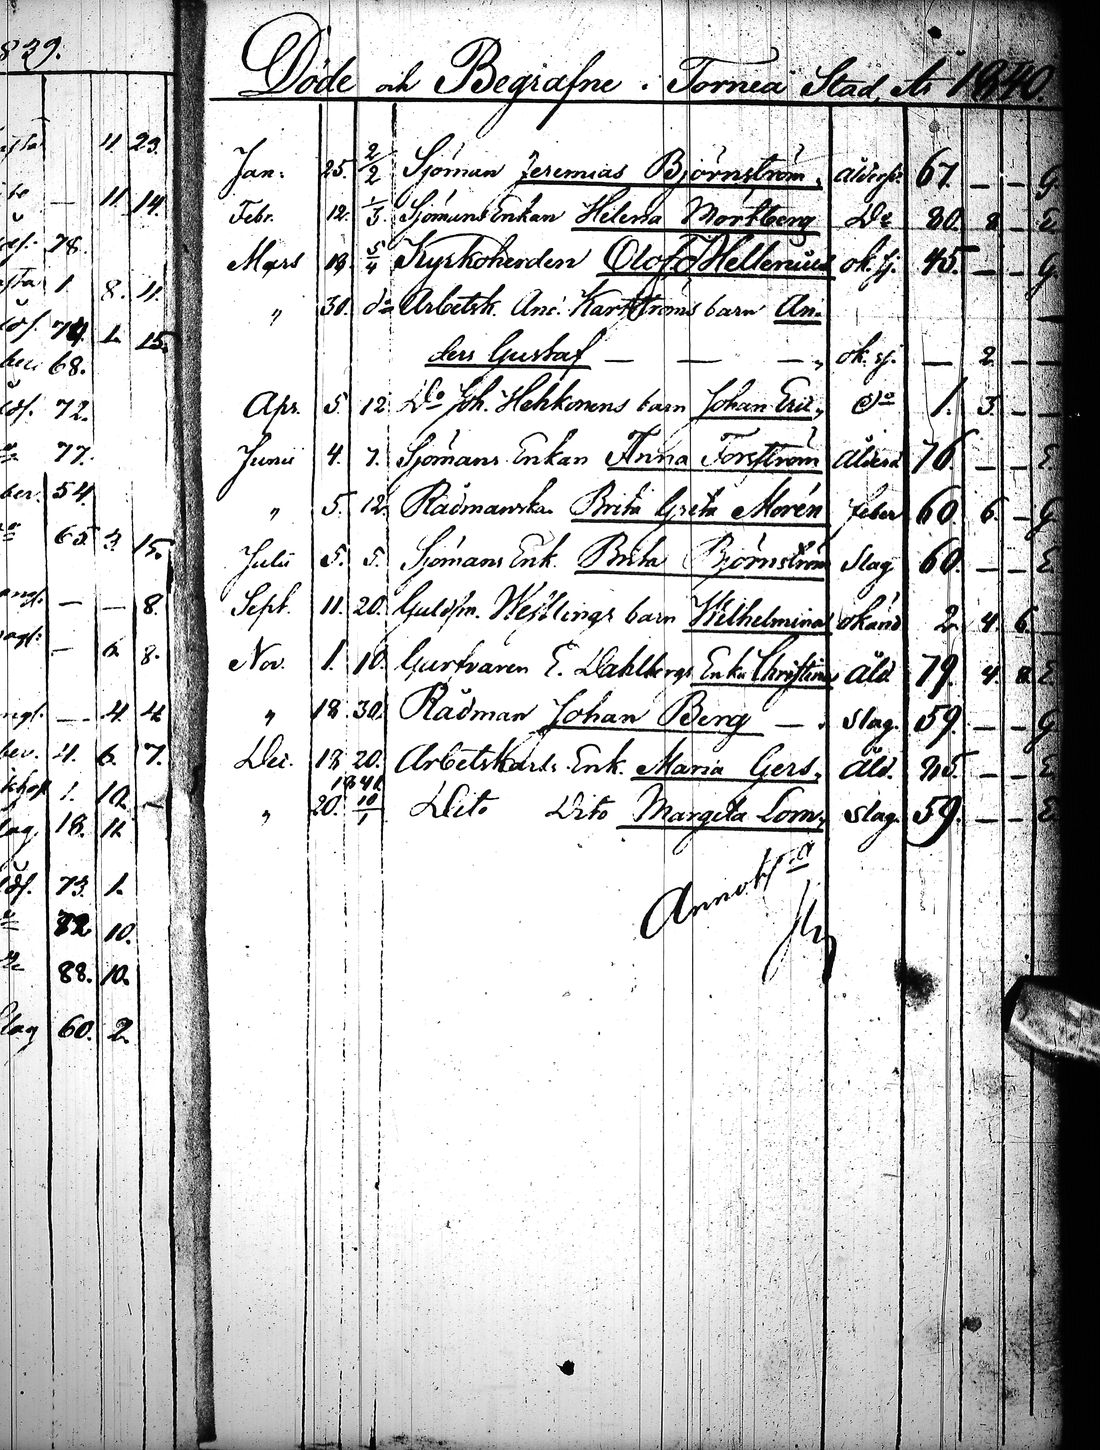 839.
11. 23.
— 11. 14.
78.
1. 8. 11.
74. 1. 15.
68.
72.
77.
54.
65. 3. 15.
— — 8.
— 6. 8.
— 4. 4.
4. 6. 7.
1. 10. —
18. 11.
73. 1.
10.
88. 10.
60. 2.
Döde och Begrafne i Torneå Stad, År 1840.
Jan. 25. 2/2 Sjöman Jeremias Björnström, 67. — — G
Febr. 12. 1/3 Sjömans Enkan Helena Mörtberg Do 80. 8 — E
Mars 19. 5/4 Kyrkoherden Olof Hellenius ok. sj. 45. — — G
„ 30. do Arbetsk. And. Karlströms barn An-
ders Gustaf — — — „ ok. sj. — 2. — —
Apr. 5. 12. Do Joh. Hehkonens barn Johan Eric, Do 1. 3. — —
Junii 4. 7. Sjömans Enkan Anna Forström 76 — — E
„ 5. 12. Rådmanska Brita Greta Morén feber 60. 6. — G
Julii 5. 5. Sjömans Enk. Brita Björnström Slag 60. — — E
Sept. 11. 20. Guldsm. Westlings barn Wilhelmina okänd 2. 4. 6. —
Nov. 1. 10. Garfvaren E. Dahlbergs Enka Christina Åld. 79. 4. 8. E
„ 18. 30. Rådman Johan Berg — . slag. 59. — — G
Dec. 18. 20. Arbetskarls Enk. Maria Gers, Åld. 85. — — E
1841.
„ 20. 10/1 Dito Dito Margeta Lom, slag. 59. — — E